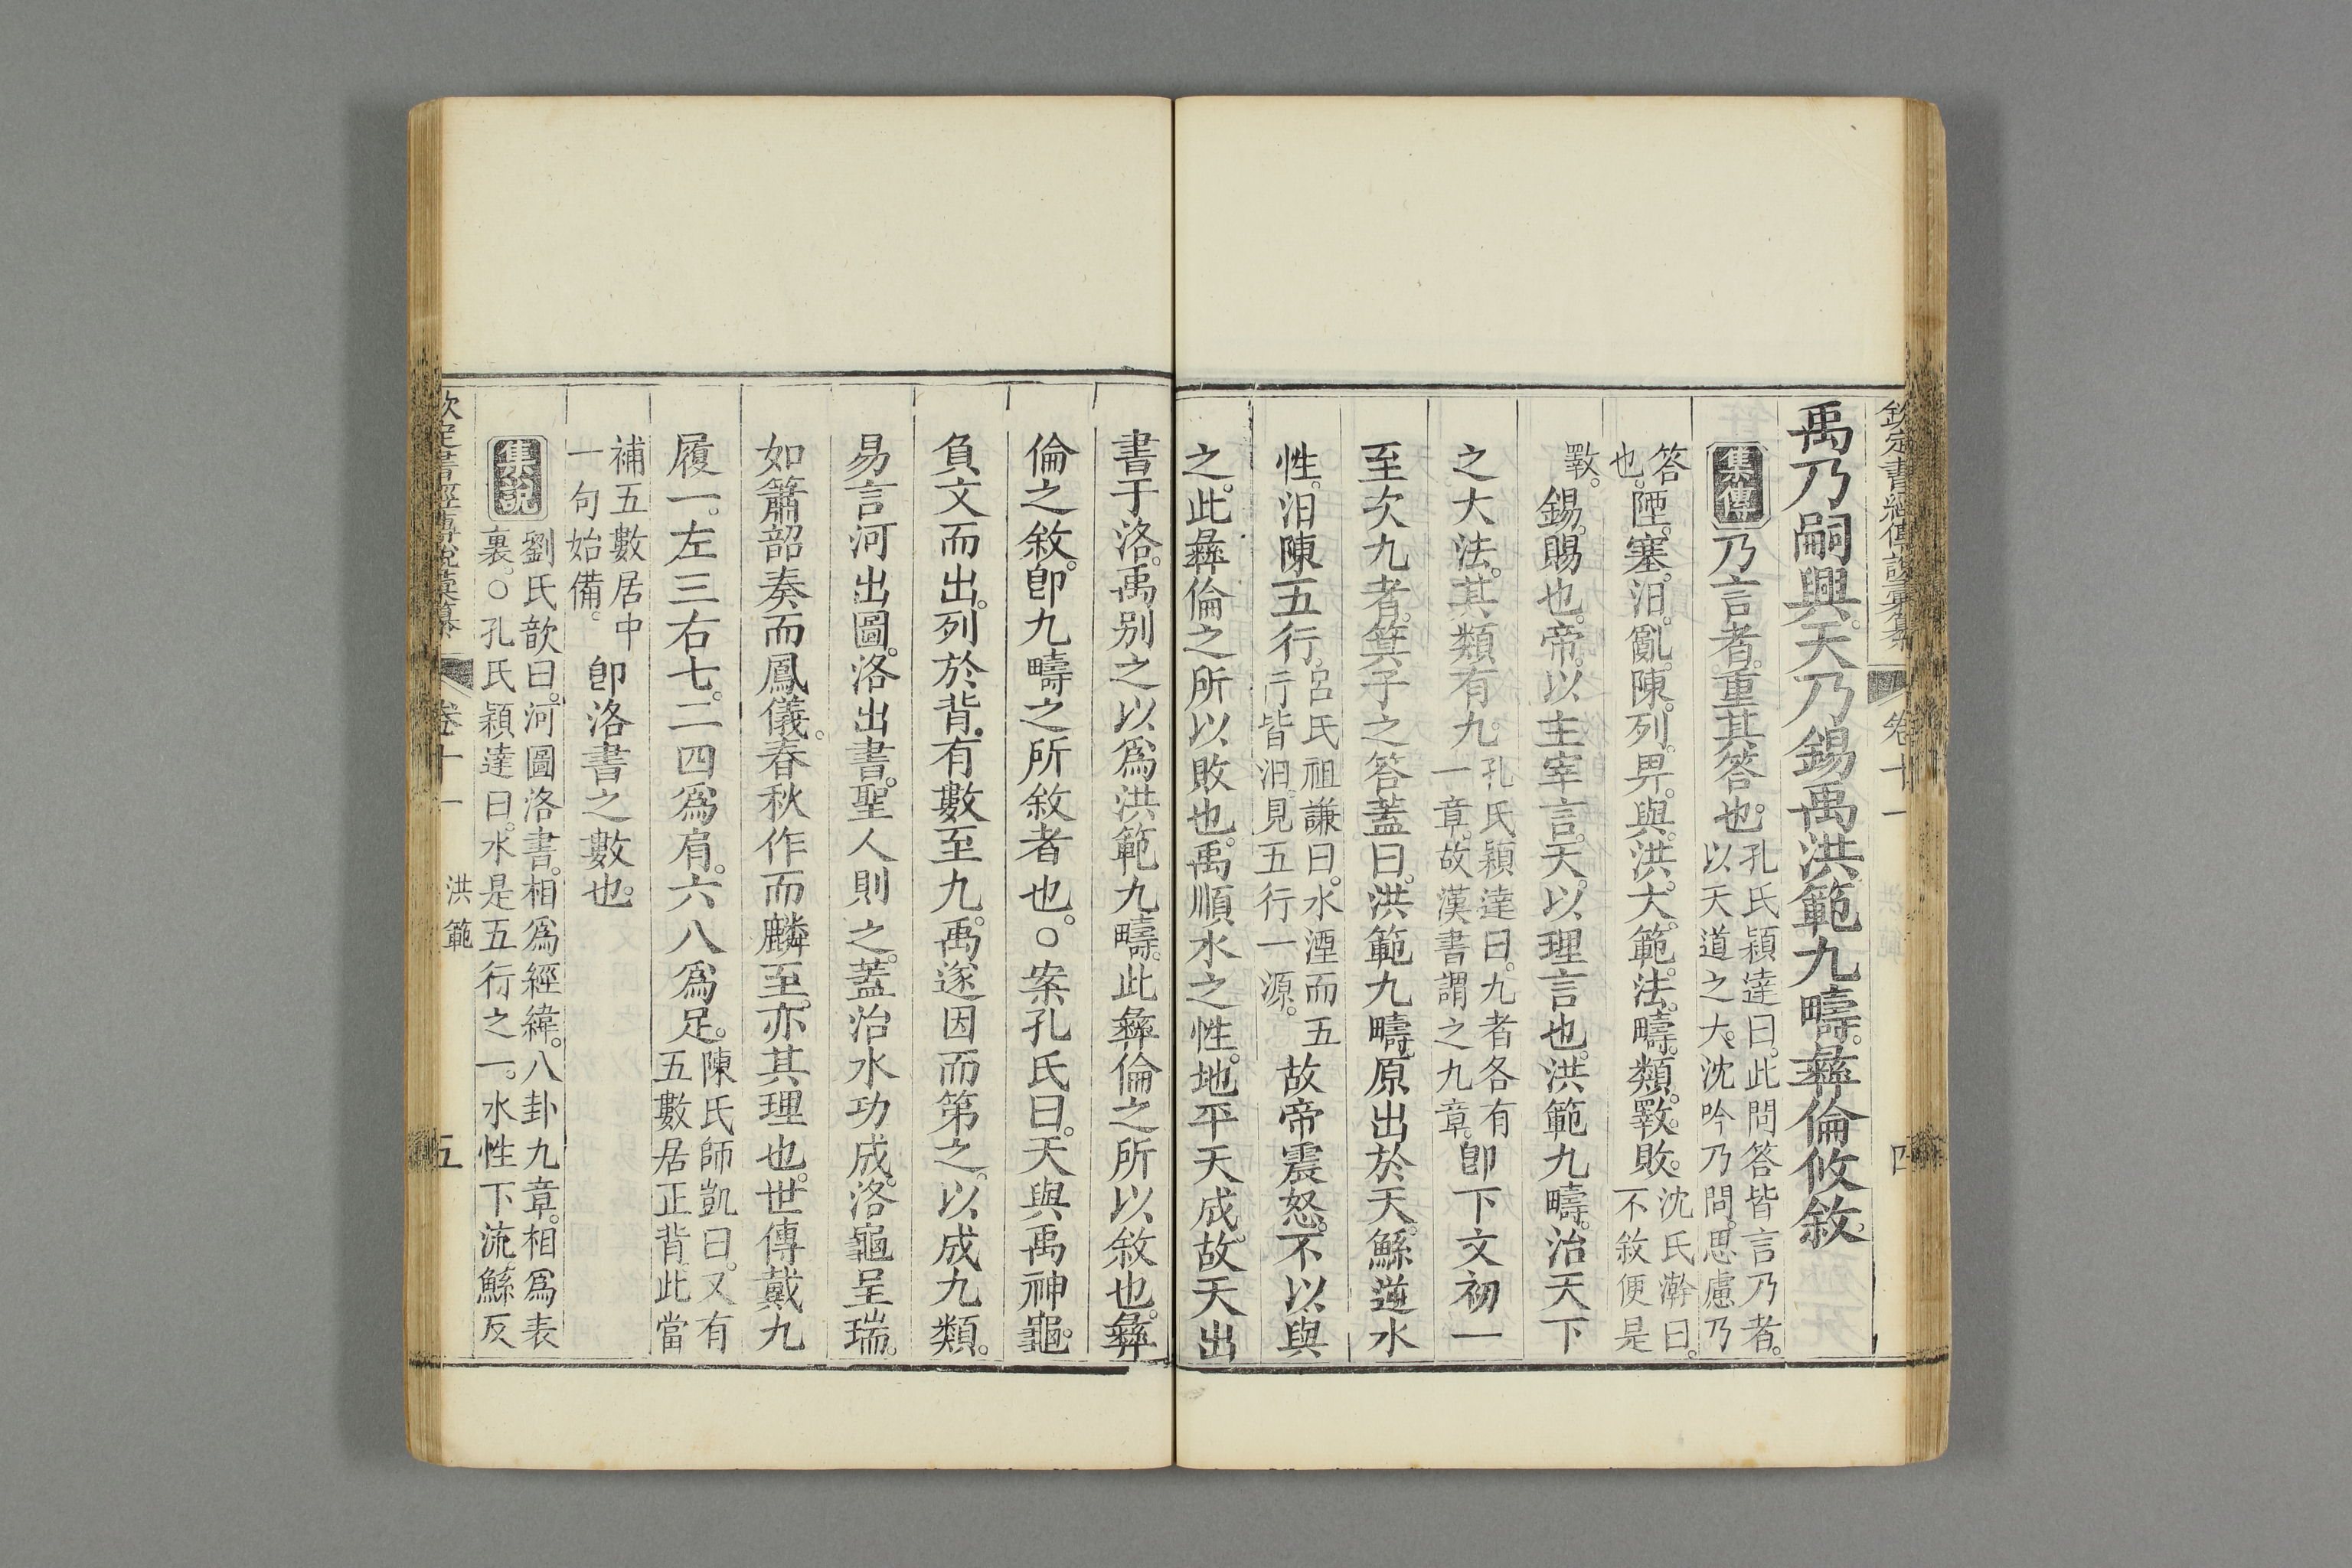 欽定書經傳說彙纂 卷十一 四
禹乃嗣興。天乃錫禹洪範九疇。彝倫攸敘。
集傳 乃言者。重其答也。孔氏穎達曰。此問答皆言乃者。以天道之大。沈吟乃問。思慮乃
答也。陻。塞。汩。亂。陳。列。畀。與。洪。大。範。法。疇。類。斁。敗。沈氏澣曰。不敘便是
斁。錫。賜也。帝。以主宰言。天。以理言也。洪範九疇。治天下
之大法。其類有九。孔氏穎達曰。九者各有一章。故漢書謂之九章。卽下文初一
至次九者。箕子之答。蓋曰。洪範九疇。原出於天。鯀逆水
性。汩陳五行。呂氏祖謙曰。水湮而五行皆汩。見五行一源。故帝震怒。不以與
之。此彝倫之所以敗也。禹順水之性。地平天成。故天出
書于洛。禹別之以爲洪範九疇。此彝倫之所以敘也。彝
倫之敘。卽九疇之所敘者也。○案孔氏曰。天與禹神龜。
負文而出。列於背。有數至九。禹遂因而第之。以成九類。
易言河出圖。洛出書。聖人則之。蓋治水功成。洛龜呈瑞。
如簫韶奏而鳳儀。春秋作而麟至。亦其理也。世傳戴九
履一。左三右七。二四爲肩。六八爲足。陳氏師凱曰。又有五數居正背。此當
補五數居中一句始備。卽洛書之數也。
集說 劉氏歆曰。河圖洛書。相爲經緯。八卦九章。相爲表裏。○孔氏穎達曰。水是五行之一。水性下流。鯀反
欽定書經傳說彙纂 卷十一 洪範 五